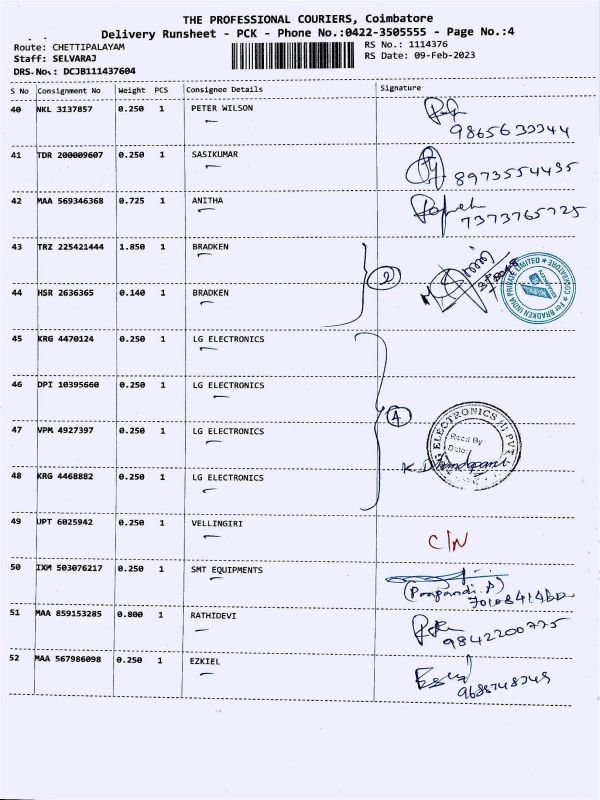 THE PROFESSIONAL COURIERS, Coimbatore
Delivery Runsheet - PCK - Phone No.:0422-3505555 - Page No.:4
Route: CHETTIPALAYAM RS No.: 1114376
Staff: SELVARAJ RS Date: 09-Feb-2023
DRS No.: DCJB111437604
S No Consignment No Weight PCS Consignee Details Signature
40 NKL 3137857 0.250 1 PETER WILSON
41 TDR 200009607 0.250 1 SASIKUMAR
8973554435
42 MAA 569346368 0.725 1 ANITHA
7373765725
43 TRZ 225421444 1.850 1 BRADKEN
2
For BRADKEN INDIA PRIVATE LIMITED COIMBATORE
44 HSR 2636365 0.140 1 BRADKEN
45 KRG 4470124 0.250 1 LG ELECTRONICS
46 DPI 10395660 0.250 1 LG ELECTRONICS
4
ELECTRONICS (I) PVT
47 VPM 4927397 0.250 1 LG ELECTRONICS
Recd By
Date
48 KRG 4468882 0.250 1 LG ELECTRONICS
49 UPT 6025942 0.250 1 VELLINGIRI
C/N
50 IXM 503076217 0.250 1 SMT EQUIPMENTS
51 MAA 859153285 0.800 1 RATHIDEVI
9842200775
52 MAA 567986098 0.250 1 EZKIEL